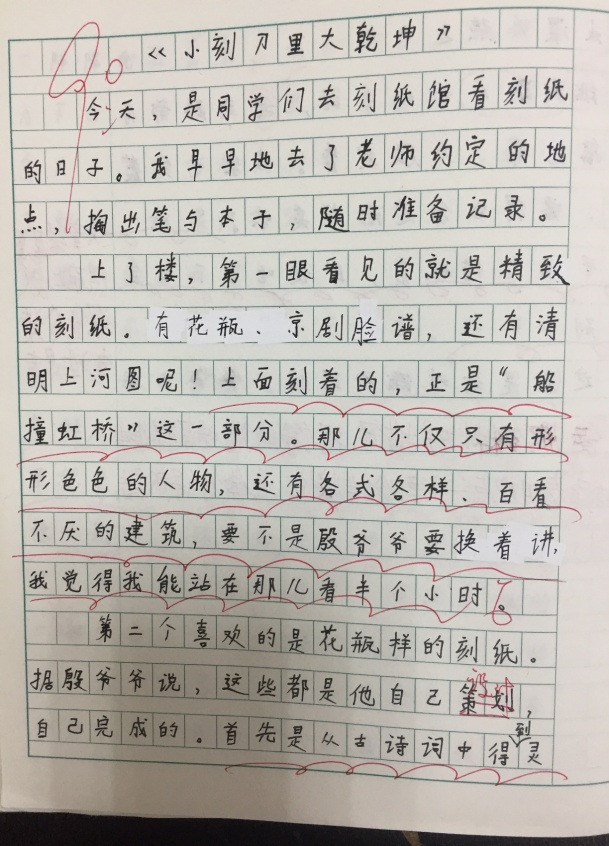 90
《小刻刀里大乾坤》
今天，是同学们去刻纸馆看刻纸
的日子。我早早地去了老师约定的地
点，掏出笔与本子，随时准备记录。
上了楼，第一眼看见的就是精致
的刻纸。有花瓶、京剧脸谱，还有清
明上河图呢！上面刻着的，正是“船
撞虹桥”这一部分。那儿不仅只有形
形色色的人物，还有各式各样、百看
不厌的建筑，要不是殷爷爷要换着讲，
我觉得我能站在那儿看半个小时。
第二个喜欢的是花瓶样的刻纸。
据殷爷爷说，这些都是他自己策划，
自己完成的。首先是从古诗词中得到灵